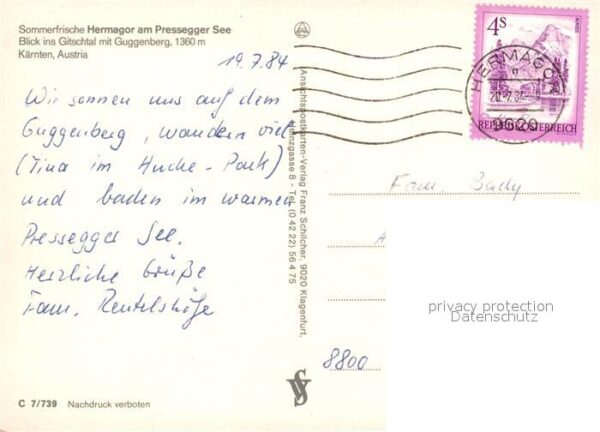 Sommerfrische Hermagor am Pressegger See
Blick ins Gitschtal mit Guggenberg, 1360 m
Kärnten, Austria
19.7.84
Wir sonnen uns auf dem
Guggenberg, wandern viel
(Tina im Hucke-Pack)
und baden im warmen
Pressegger See.
Herzliche Grüße
Fam.
C 7/739 Nachdruck verboten
Ansichtspostkarten-Verlag Franz Schilcher, 9020 Klagenfurt,
Heinzgasse 8 - Tel. (0 42 22) 56 4 75
4S
REPUBLIK ÖSTERREICH
HERMAGOR
20.7.84
9620
Fam. Bady
A
privacy protection
Datenschutz
8800